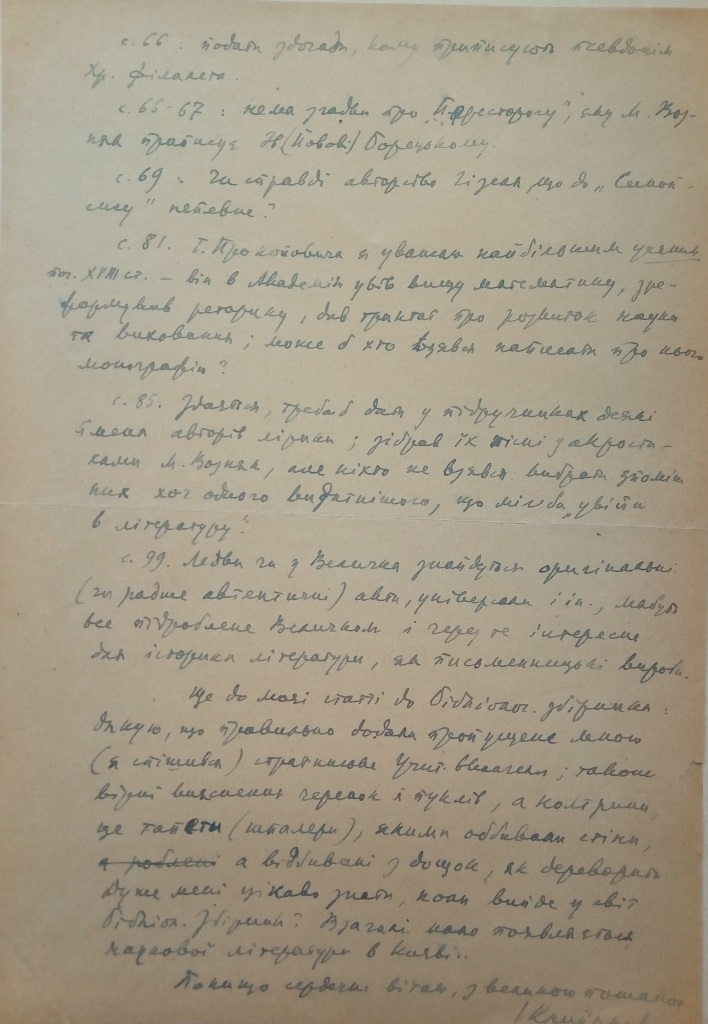 с. 66 : подати здогади, кому приписують псевдонім
Хр. Філалета.
с. 65-67 : нема згадки про „Пересторогу", яку М. Воз-
няк приписує Йову Борецькому.
с. 69 : Чи справді авторство Гізеля що до „Синоп-
сису" непевне?
с. 81. Т. Прокоповича я уважаю найбільшим ученим
поч. XVIII ст. – він в Академії увів вищу математику, зре-
формував реторику, дав трактат про розвиток науки
та виховання ; може б хто взявся написати про нього
монографію?
с. 85. Здається, треба б дати у підручниках деякі
імена авторів лірики ; зібрав їх пісні з акрости-
хами М. Возняк, але ніхто не взявся вибрати з поміж
них хоч одного видатнішого, що міг би „увійти
в літературу".
с. 99. Ледви чи у Величка знайдуться оригінальні
(чи радше автентичні) акти, універсали і ін., мабуть
все підроблене Величком і через те інтересне
для історика літератури, як письменницькі вироби.
Ще до моєї статті до Бібліолог. збірника :
дякую, що правильно додали пропущене мною
(я спішився) ; також
вірні вияснення черепок і пуклів, а колтрини,
ще тапети (шпалери), якими оббивали стіни,
а роблені а відбивані з дощок, як дереворити
Дуже мені цікаво знати, коли вийде у світ
Бібліол. Збірник? Взагалі мало появляється
наукової літератури в Києві..
Покищо сердечно вітаю, з великою пошаною